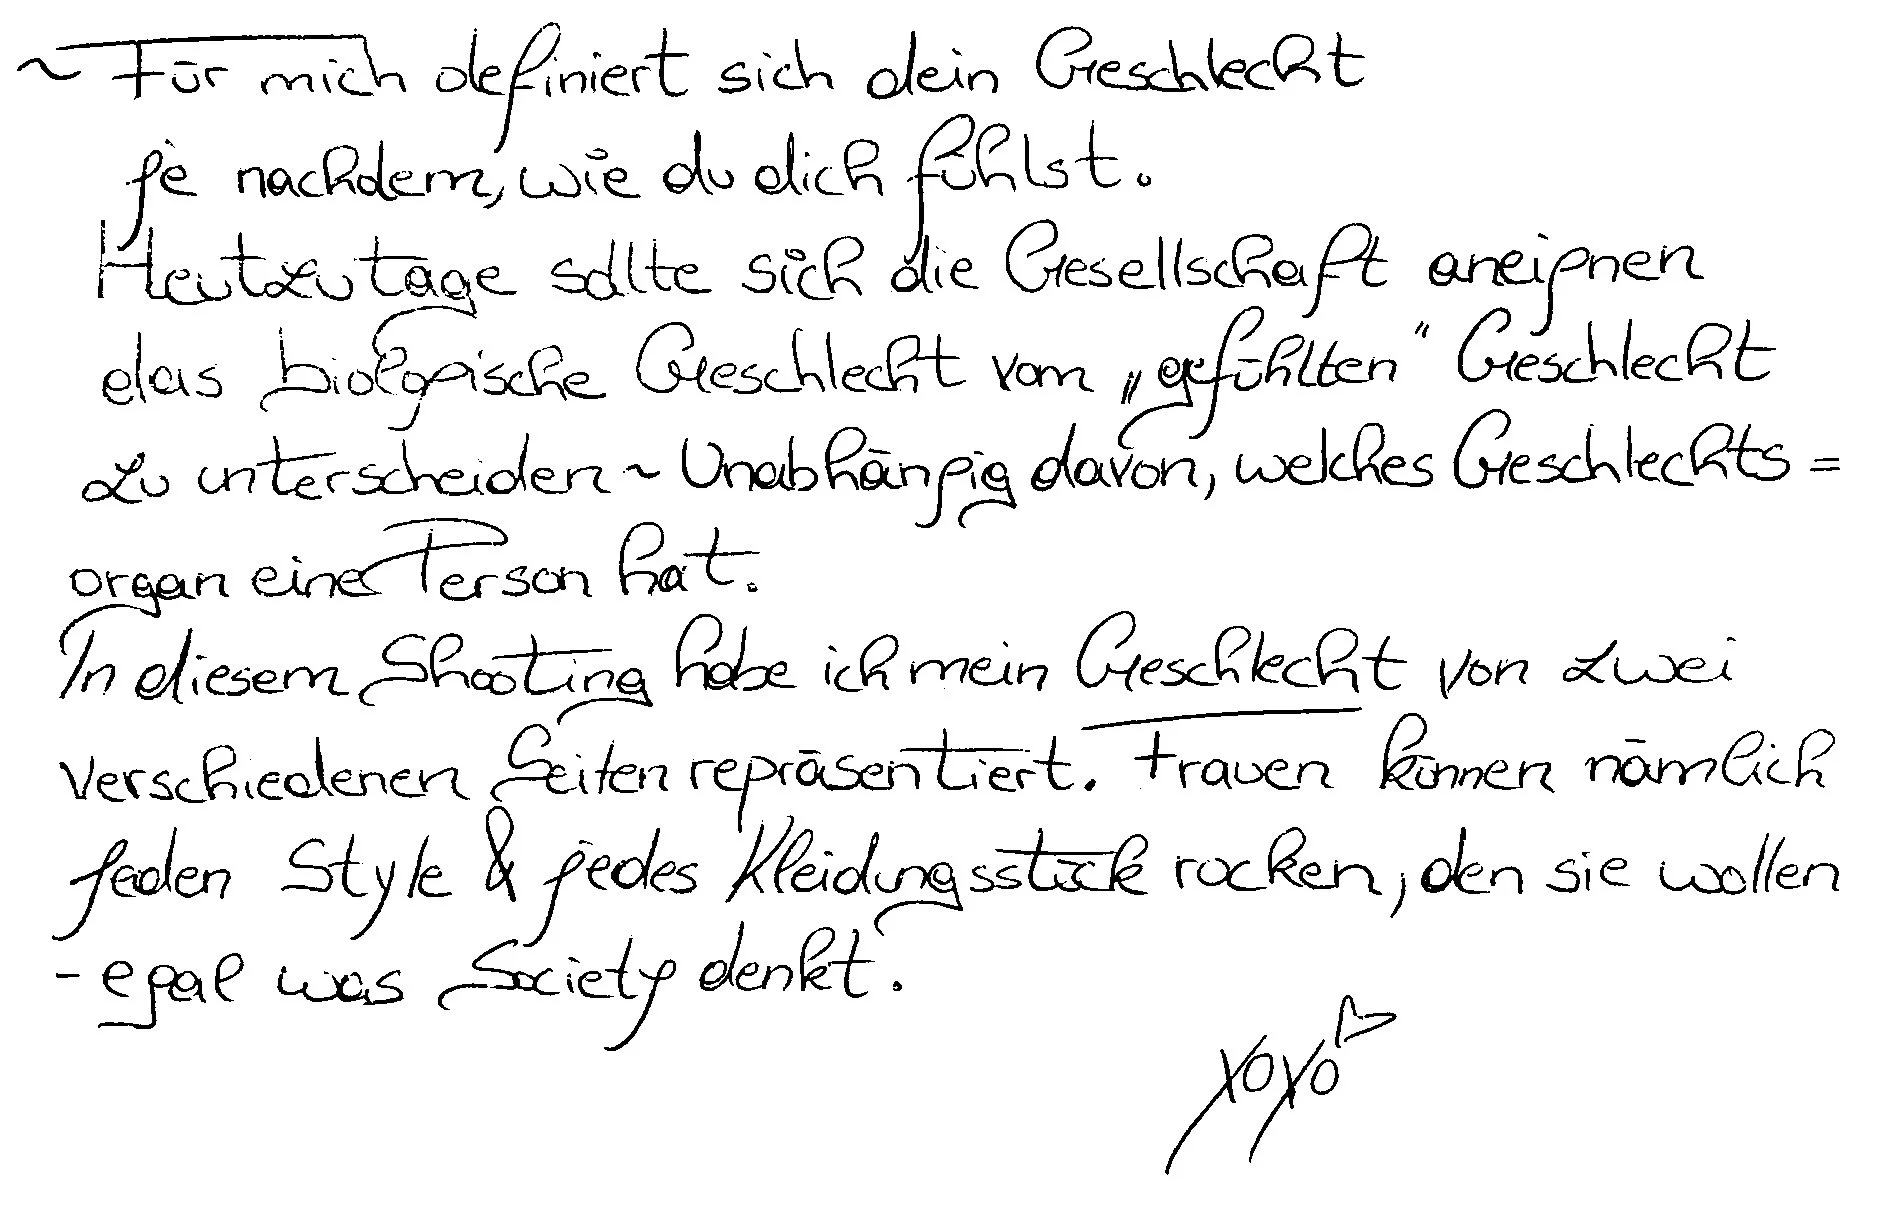 ~ Für mich definiert sich dein Geschlecht
je nachdem, wie du dich fühlst.
Heutzutage sollte sich die Gesellschaft aneignen
das biologische Geschlecht vom „gefühlten" Geschlecht
zu unterscheiden ~ Unabhängig davon, welches Geschlechts=
organ eine Person hat.
In diesem Shooting habe ich mein Geschlecht von zwei
verschiedenen Seiten repräsentiert. Frauen können nämlich
jeden Style & jedes Kleidungsstück rocken, den sie wollen
- egal was Society denkt.
XOXO